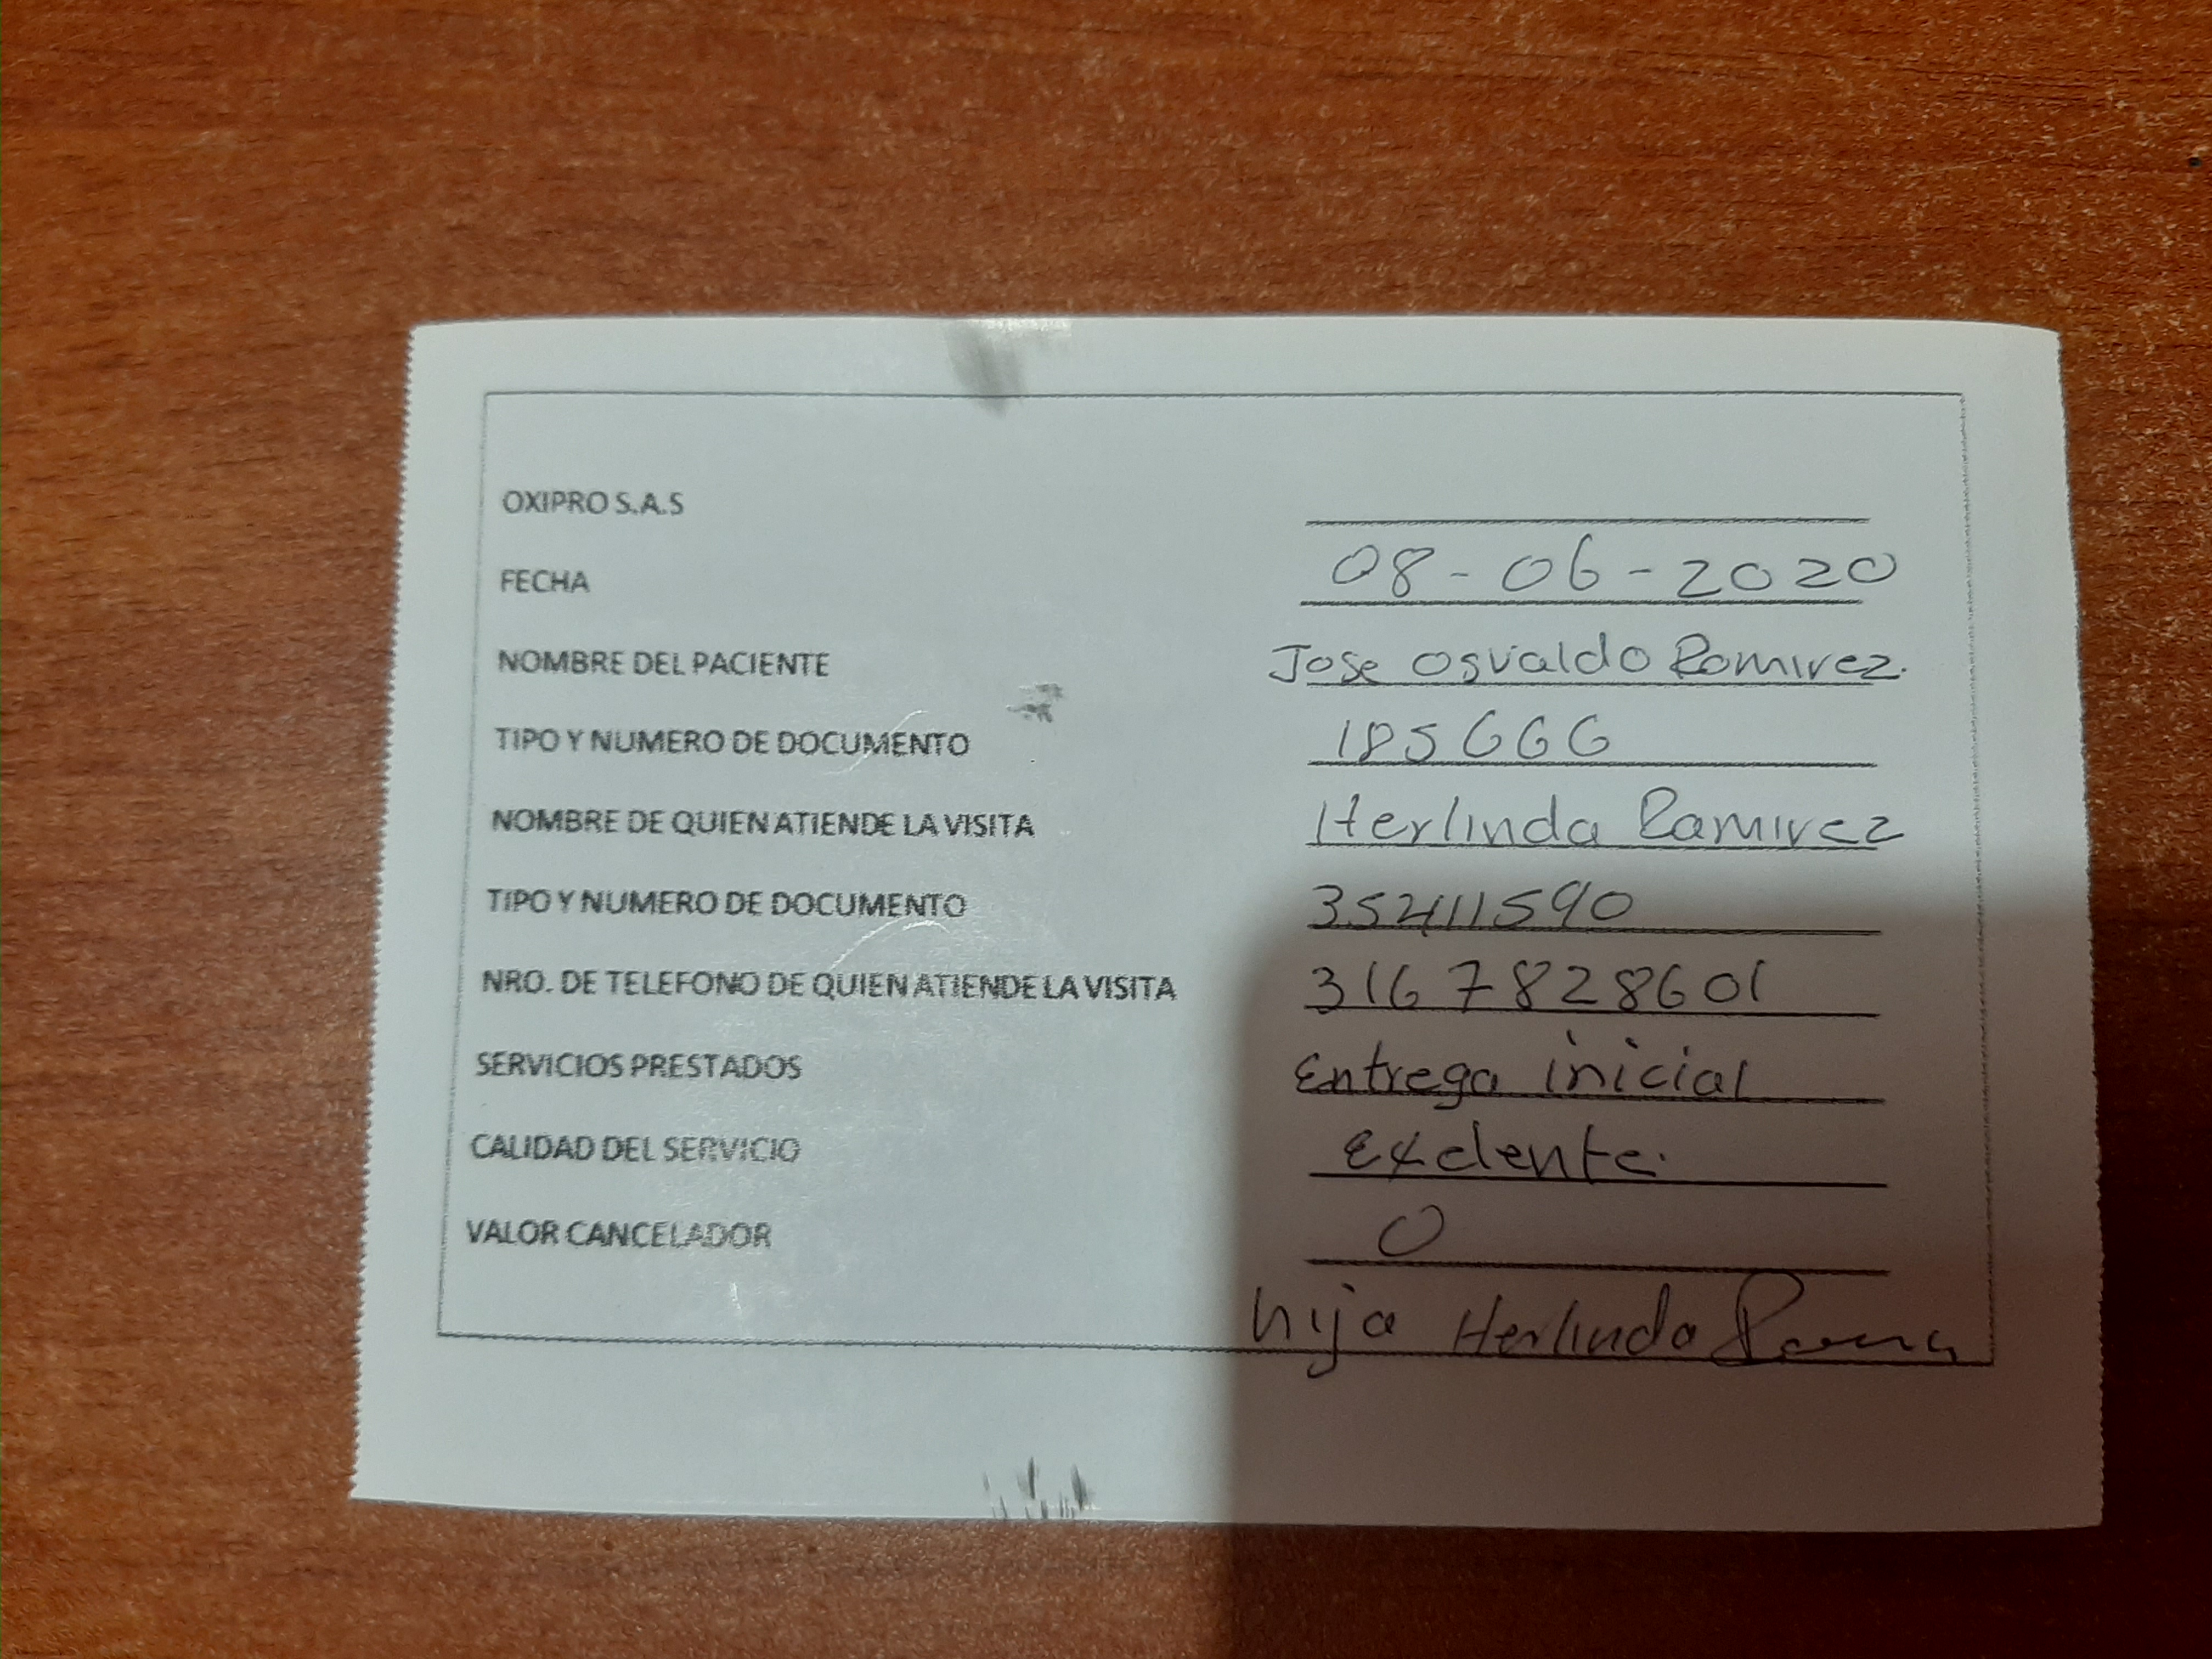 OXIPRO S.A.S
FECHA 08-06-2020
NOMBRE DEL PACIENTE Jose Osvaldo Ramirez.
TIPO Y NUMERO DE DOCUMENTO 185666
NOMBRE DE QUIEN ATIENDE LA VISITA Herlinda Ramirez
TIPO Y NUMERO DE DOCUMENTO 35411590
NRO. DE TELEFONO DE QUIEN ATIENDE LA VISITA 3167828601
SERVICIOS PRESTADOS Entrega inicial
CALIDAD DEL SERVICIO Exelente.
VALOR CANCELADOR 0
hija Herlinda